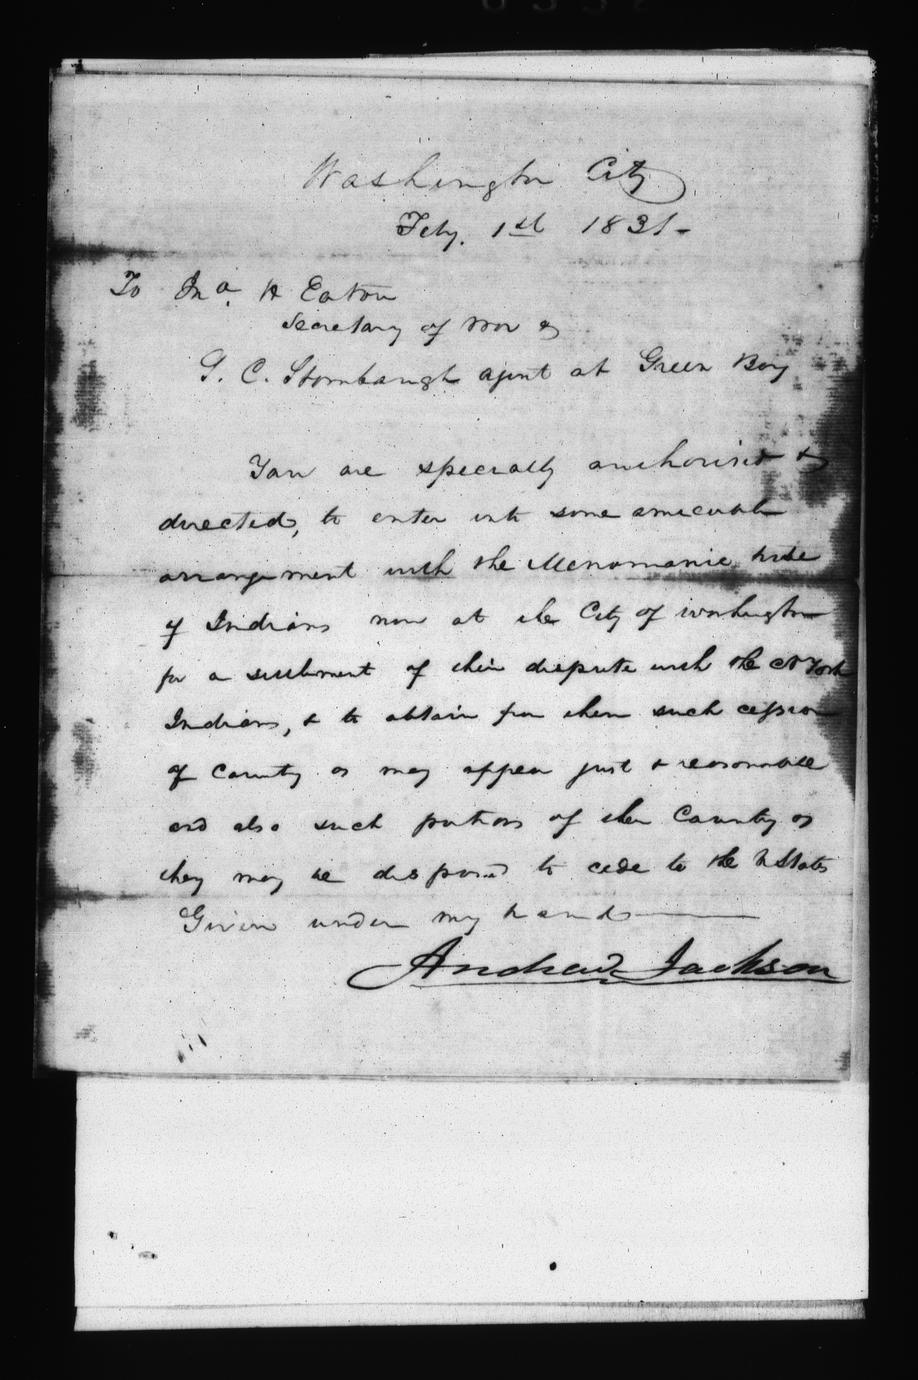 Washington City
Feby. 1st 1831.
To Jno. H Eaton
Secretary of War &
S. C. Stambaugh agent at Green Bay
You are specially authorised &
directed, to enter into some amicable
arrangement with the Menomanie tribe
of Indians now at the City of Washington
for a settlement of their dispute with the N York
Indians, & to obtain from them such cession
of County as may appear just & reasonable
and also such portions of their County as
they may be disposed to cede to the U States
Given under my hand
Andrew Jackson